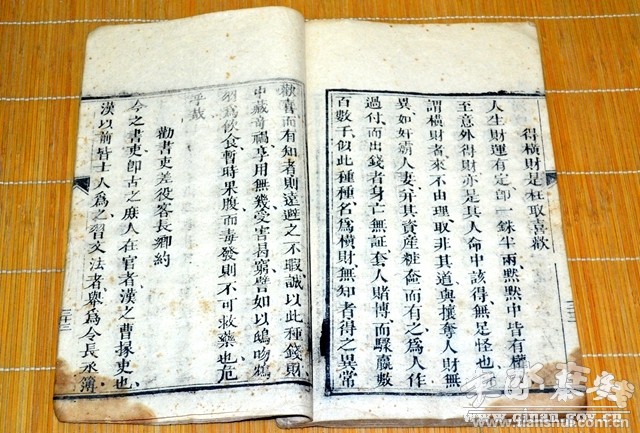 得橫財是枉取喜歡
人生財運有定卽一銖半兩黙黙中皆有權
至意外得財亦是其人命中該得無足怪也
謂橫財者來不由理取非其道與攘奪人財無
異如奸霸人妻弃其資産粧奩而有之爲人作
過付而出錢者身亡無証套人賭博而騙贏數
百數千似此種種名爲橫財無知者得之異常
歡喜而有知者則遠避之不暇誠以此種錢財
中藏奇禍享用無幾受害搗窮譬如以鴆吻鴉
爲飲食暫時果腹而毒發則不可救藥也危
乎哉
勸書吏差役客長鄉約
今之書吏卽古之庶人在官者漢之曹掾吏也
漢以前皆士人爲之習文法者舉爲令長丞簿
www.qinan.gov.cn